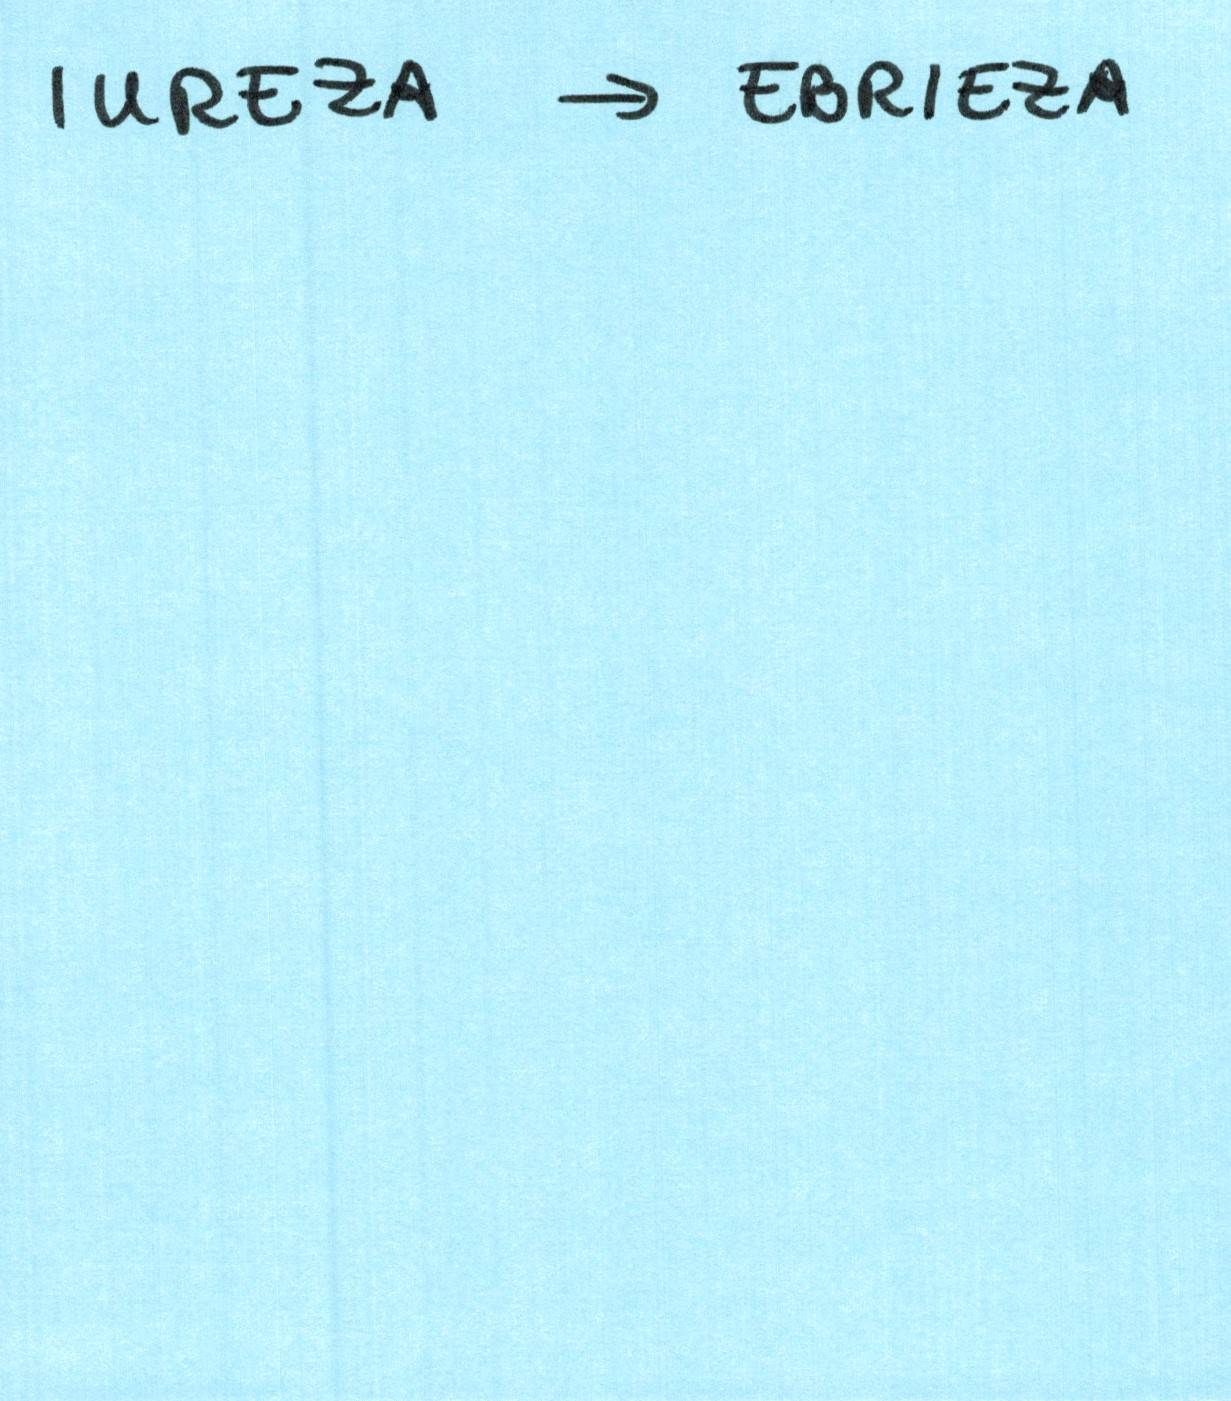 IUREZA → EBRIEZA